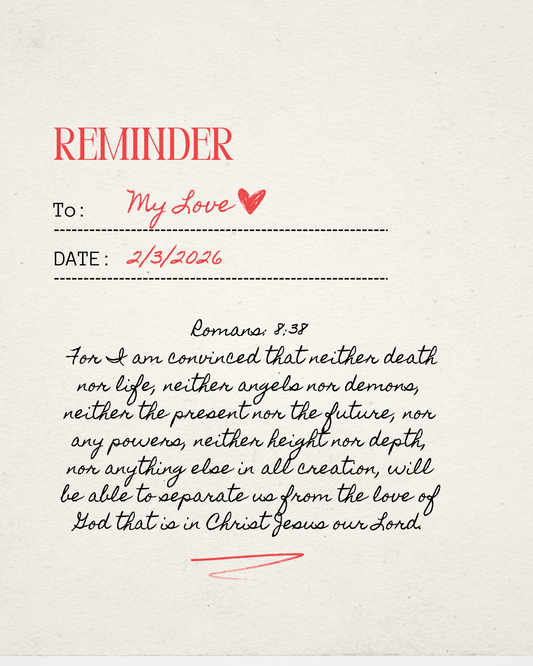 REMINDER
To: My Love
DATE: 2/3/2026
Romans: 8:38
For I am convinced that neither death
nor life, neither angels nor demons,
neither the present nor the future, nor
any powers, neither height nor depth,
nor anything else in all creation, will
be able to separate us from the love of
God that is in Christ Jesus our Lord.